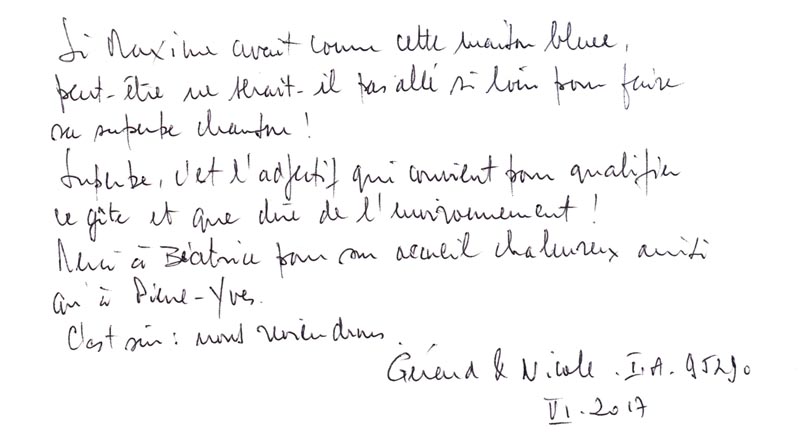 Si Maxime avait connu cette maison bleue,
peut-être ne serait-il pas allé si loin pour faire
sa superbe chanson !
Superbe, c'est l'adjectif qui convient pour qualifier
ce gîte et que dire de l'environnement !
Merci à Béatrice pour son accueil chaleureux ainsi
qu'à Pierre-Yves.
C'est sûr : nous reviendrons.
Gérard & Nicole . I.A. 95290
VI. 2017